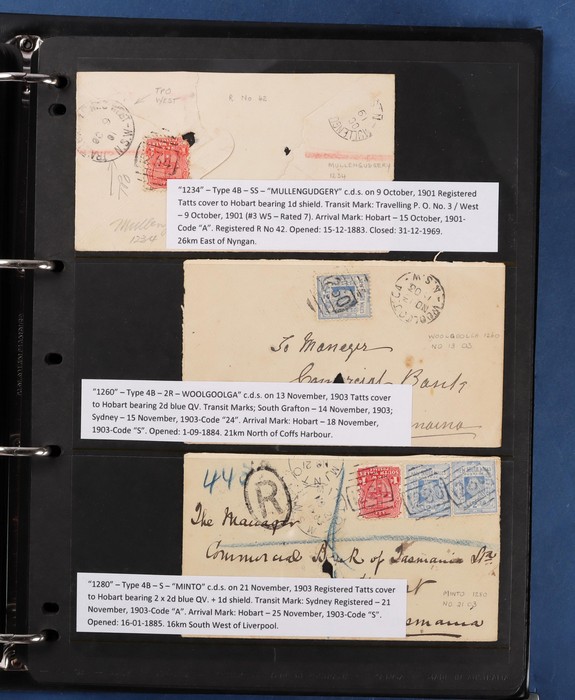 TPO
WEST
R No 42
MULLENGUDGERY
1234
TPO
1234
"1234" – Type 4B – SS – "MULLENGUDGERY" c.d.s. on 9 October, 1901 Registered
Tatts cover to Hobart bearing 1d shield. Transit Mark: Travelling P. O. No. 3 / West
– 9 October, 1901 (#3 WS – Rated 7). Arrival Mark: Hobart – 15 October, 1901-
Code "A". Registered R No 42. Opened: 15-12-1883. Closed: 31-12-1969.
26km East of Nyngan.
WOOLGOOLGA
N.S.W.
To Manager
WOOLGOOLGA 1260
NO 13 03
Commercial Bank
"1260" – Type 4B – 2R – WOOLGOOLGA" c.d.s. on 13 November, 1903 Tatts cover
to Hobart bearing 2d blue QV. Transit Marks; South Grafton – 14 November, 1903;
Sydney – 15 November, 1903-Code "24". Arrival Mark: Hobart – 18 November,
1903-Code "S". Opened: 1-09-1884. 21km North of Coffs Harbour.
448
R
The Manager
Commercial Bank of Tasmania
MINTO 1280
NO 21 03
"1280" – Type 4B – S – "MINTO" c.d.s. on 21 November, 1903 Registered Tatts cover
to Hobart bearing 2 x 2d blue QV. + 1d shield. Transit Mark: Sydney Registered – 21
November, 1903-Code "A". Arrival Mark: Hobart – 25 November, 1903-Code "S".
Opened: 16-01-1885. 16km South West of Liverpool.